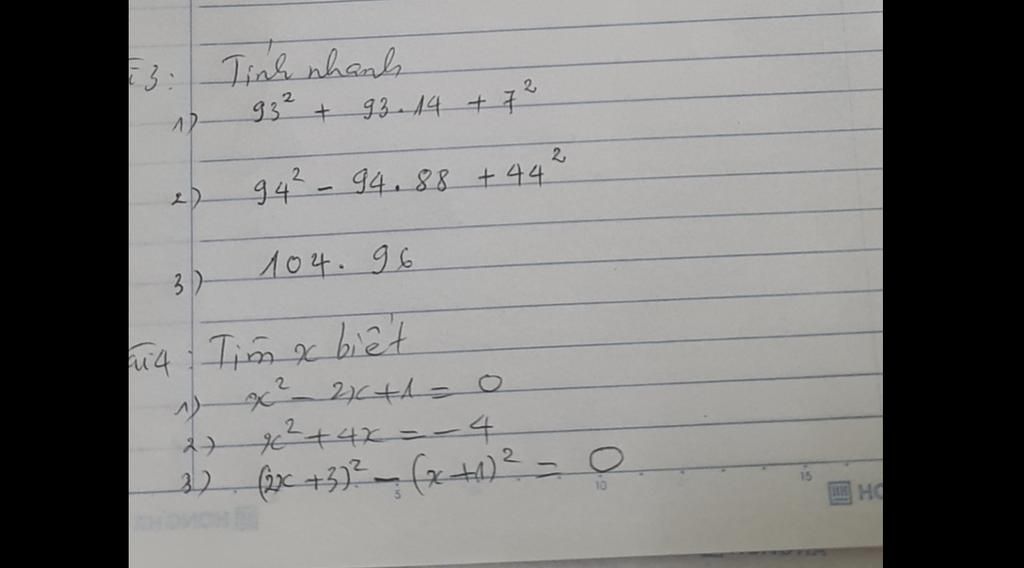 3: Tính nhanh
1) 93² + 93.14 + 7²
2) 94² - 94.88 + 44²
3) 104. 96
4: Tìm x biết
1) x² - 2x + 1 = 0
2) x² + 4x = -4
3) (2x + 3)² - (x + 1)² = 0
5 10 15